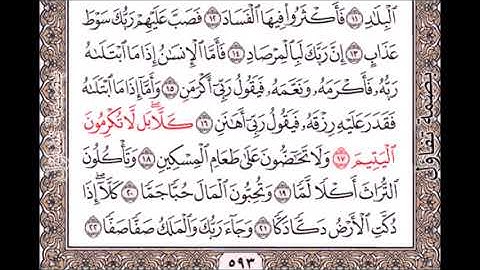 ٱلْبِلَٰدِ ١١ فَأَكْثَرُوا۟ فِيهَا ٱلْفَسَادَ ١٢ فَصَبَّ عَلَيْهِمْ رَبُّكَ سَوْطَ
عَذَابٍ ١٣ إِنَّ رَبَّكَ لَبِٱلْمِرْصَادِ ١٤ فَأَمَّا ٱلْإِنسَٰنُ إِذَا مَا ٱبْتَلَىٰهُ
رَبُّهُۥ فَأَكْرَمَهُۥ وَنَعَّمَهُۥ فَيَقُولُ رَبِّىٓ أَكْرَمَنِ ١٥ وَأَمَّآ إِذَا مَا ٱبْتَلَىٰهُ
فَقَدَرَ عَلَيْهِ رِزْقَهُۥ فَيَقُولُ رَبِّىٓ أَهَٰنَنِ ١٦ كَلَّا ۖ بَل لَّا تُكْرِمُونَ
ٱلْيَتِيمَ ١٧ وَلَا تَحَٰٓضُّونَ عَلَىٰ طَعَامِ ٱلْمِسْكِينِ ١٨ وَتَأْكُلُونَ
ٱلتُّرَاثَ أَكْلًا لَّمًّا ١٩ وَتُحِبُّونَ ٱلْمَالَ حُبًّا جَمًّا ٢٠ كَلَّآ ۖ إِذَا
دُكَّتِ ٱلْأَرْضُ دَكًّا دَكًّا ٢١ وَجَآءَ رَبُّكَ وَٱلْمَلَكُ صَفًّا صَفًّا ٢٢
٥٩٣